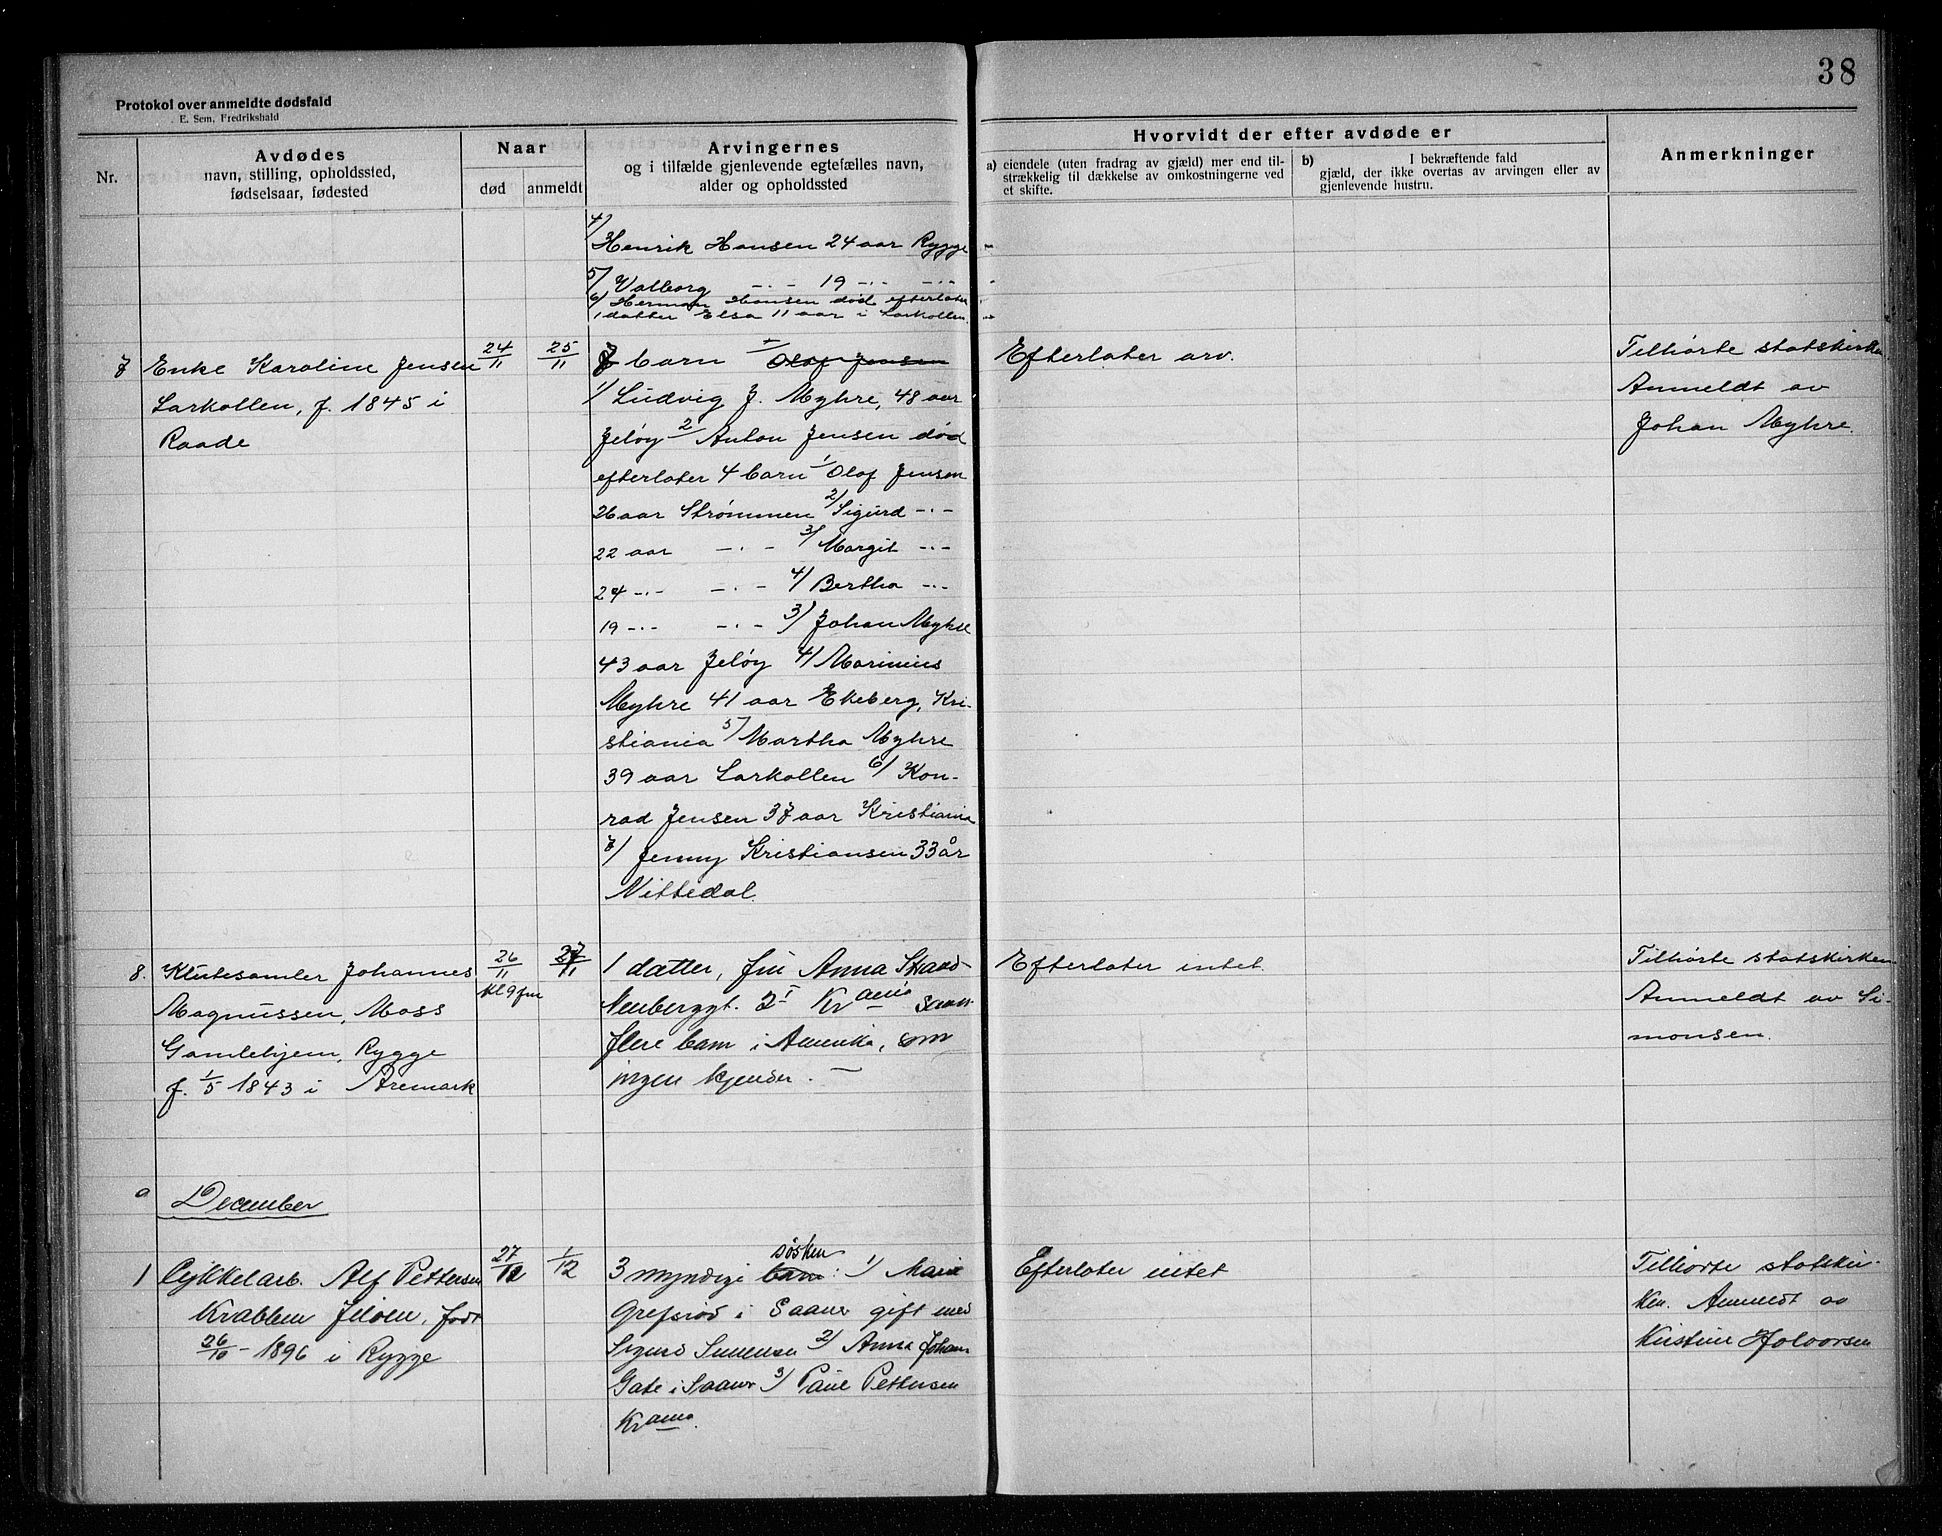 38
Protokol over anmeldte dødsfald
E. Sem, Fredrikshald
Nr.
Avdødes
navn, stilling, opholdssted,
fødselsaar, fødested
Naar
død
anmeldt
Arvingernes
og i tilfælde gjenlevende egtefælles navn,
alder og opholdssted
Hvorvidt der efter avdøde er
a) eiendele (uten fradrag av gjæld) mer end til-
strækkelig til dækkelse av omkostningerne ved
et skifte.
b) I bekræftende fald
gjæld, der ikke overtas av arvingen eller av
gjenlevende hustru.
Anmerkninger
4/
Henrik Hansen 24 aar Rygge
5/ Valborg -·- 19 -·- -·-
6/ Herman Hansen død efterlater
1 datter Elsa 11 aar i Larkollen.
7 Enke Karoline Jensen
Larkollen, f. 1845 i
Raade
24/11
25/11
7 barn 1/ Olaf Jensen
1/ Ludvig J. Myhre, 48 aar
Jeløy 2/ Anton Jensen død
efterlater 4 barn 1/ Olaf Jensen
26 aar Strømmen 2/ Sigurd -·-
22 aar -·- 3/ Margit -·-
24 -·- -·- 4/ Bertha -·-
19 -·- -·- 3/ Johan Myhre
43 aar Jeløy 4/ Marinius
Myhre 41 aar Ekeberg, Kri-
stiania 5/ Martha Myhre
39 aar Larkollen 6/ Kon-
rad Jensen 37 aar Kristiania
7/ Jenny Kristiansen 33 år
Nittedal.
Efterlater arv.
Tilhørte statskirke
Anmeldt av
Johan Myhre.
8. Klutesamler Johannes
Magnussen, Moss
Gamlehjem, Rygge
f. 1/5 1843 i Aremark
26/11
kl 9 fm
27/11
1 datter, fru Anna Strand-
Neuberggt. 2 I Kr.ania samt
flere barn i Amerika, som
ingen kjender. —
Efterlater intet.
Tilhørte statskirken
Anmeldt av Si-
monsen.
December
1 Cykkelarb. Alf Pettersen
Krabben Jeløen, født
26/10 - 1896 i Rygge
27/12
1/12
søsken
3 myndige barn: 1/ Marie
Grefsrød i Saaner gift med
Sigurd 2/ Anna Johans
Gate i Saaner 3/ Paul Pettersen
Kr.ania.
Efterlater intet
Tilhørte statskir-
ken. Anmeldt av
Kristine Halvorsen